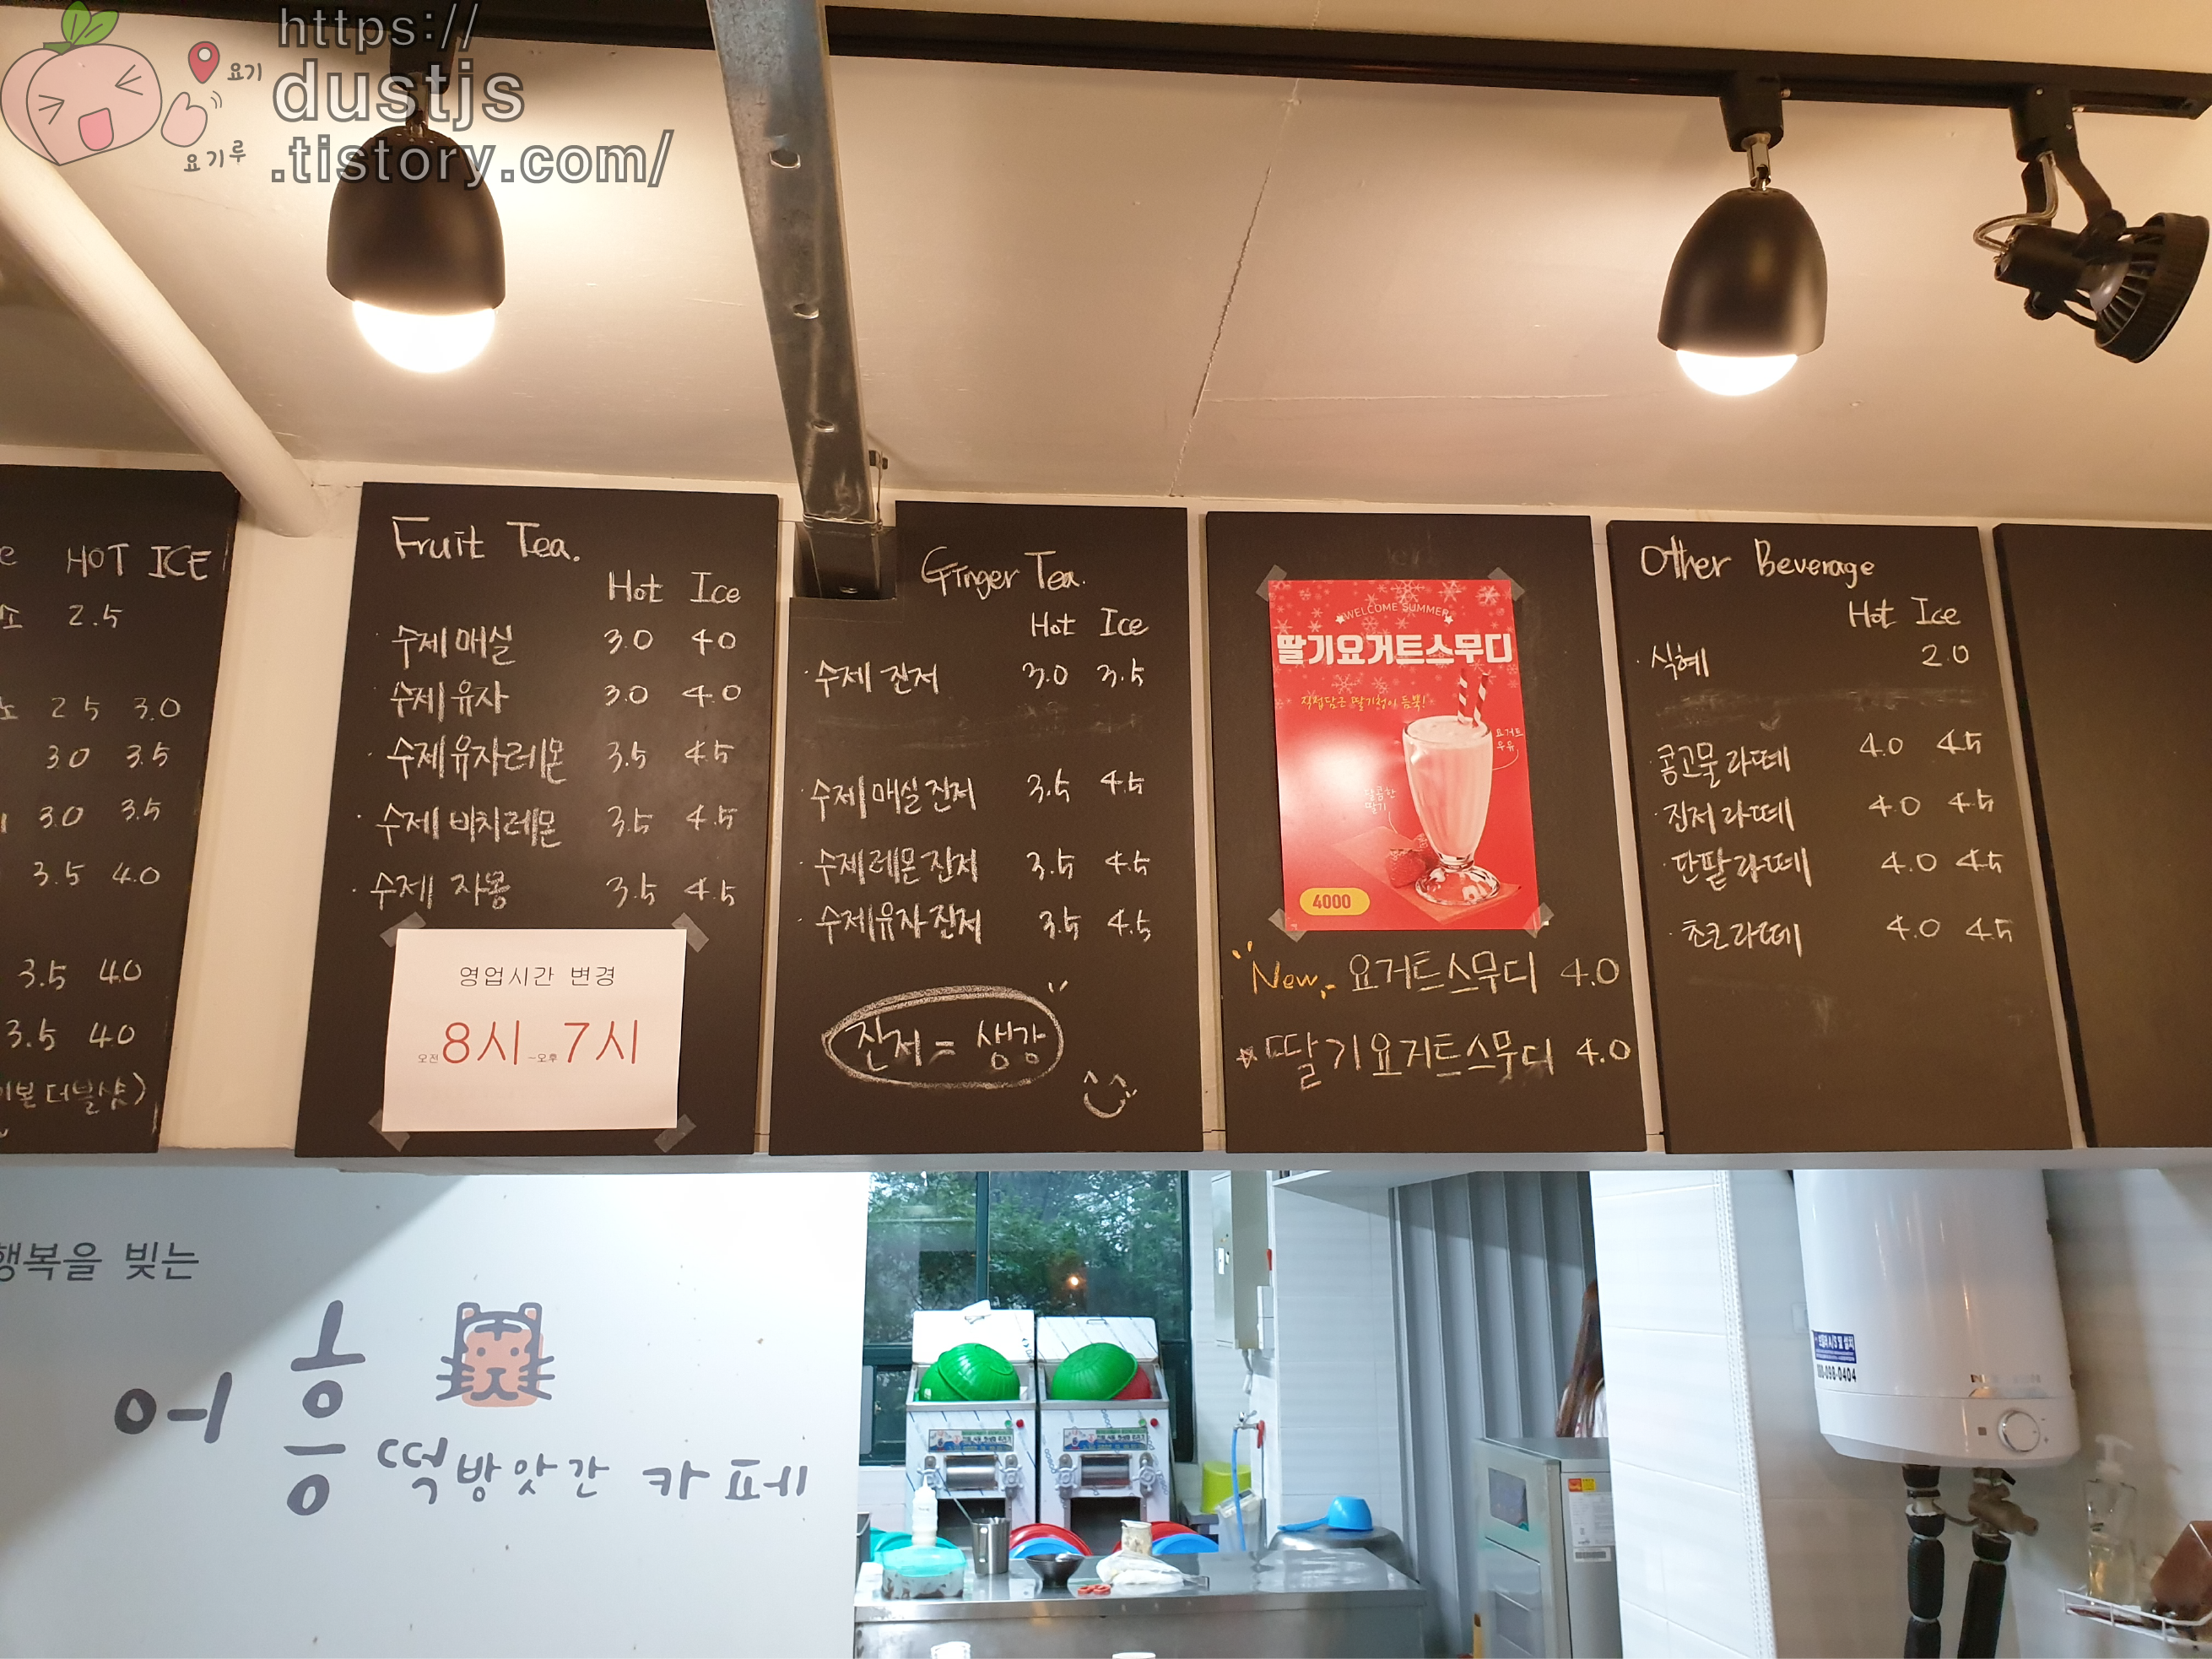 https://
dustjs
.tistory.com/
요기
요기루
HOT ICE
2.5
2.5 3.0
3.0 3.5
3.0 3.5
3.5 4.0
3.5 4.0
3.5 4.0
더블샷)
Fruit Tea.
Hot Ice
· 수제 매실 3.0 4.0
· 수제 유자 3.0 4.0
· 수제 유자레몬 3.5 4.5
· 수제 비치레몬 3.5 4.5
· 수제 자몽 3.5 4.5
영업시간 변경
오전 8시 ~오후 7시
Ginger Tea.
Hot Ice
· 수제 진저 3.0 3.5
· 수제 매실진저 3.5 4.5
· 수제레몬진저 3.5 4.5
· 수제유자진저 3.5 4.5
진저 = 생강
WELCOME SUMMER
딸기요거트스무디
직접담근 딸기청이 듬뿍!
요거트
우유
달콤한
딸기
4000
New 요거트스무디 4.0
☆ 딸기요거트스무디 4.0
Other Beverage
Hot Ice
· 식혜 2.0
· 콩고물라떼 4.0 4.5
· 진저라떼 4.0 4.5
· 단팥라떼 4.0 4.5
· 초코라떼 4.0 4.5
행복을 빚는
어흥 떡방앗간 카페